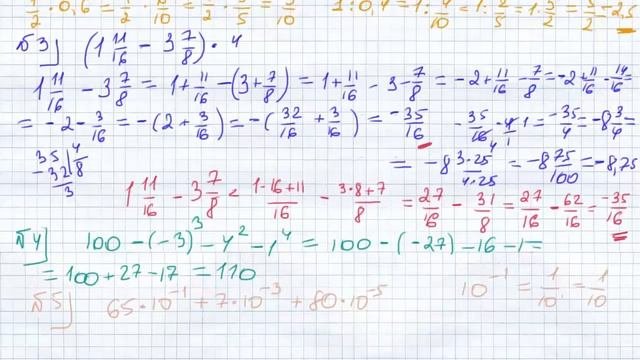 1/2 · 0,6 = 1/2 · 6/10 = 1/2 · 3/5 = 3/10
1 : 0,4 = 1 : 4/10 = 1 : 2/5 = 1 · 5/2 = 5/2 = 2,5
№3] (1 11/16 - 3 7/8) · 4
1 11/16 - 3 7/8 = 1 + 11/16 - (3 + 7/8) = 1 + 11/16 - 3 - 7/8 = -2 + 11/16 - 7/8 = -2 + 11/16 - 14/16
= -2 - 3/16 = -(2 + 3/16) = -(32/16 + 3/16) = -35/16
-35/16 · 4/1 = -35/4 = -8 3/4 =
= -8 3·25/4·25 = -8 75/100 = -8,75
35 | 4
-32 | 8
3
1 11/16 - 3 7/8 = 1·16+11/16 - 3·8+7/8 = 27/16 - 31/8 = 27/16 - 62/16 = -35/16
№4] 100 - (-3)³ - 4² - 1⁴ = 100 - (-27) - 16 - 1 =
= 100 + 27 - 17 = 110
№5] 65·10⁻¹ + 7·10⁻³ + 80·10⁻⁵
10⁻¹ = 1/10¹ = 1/10